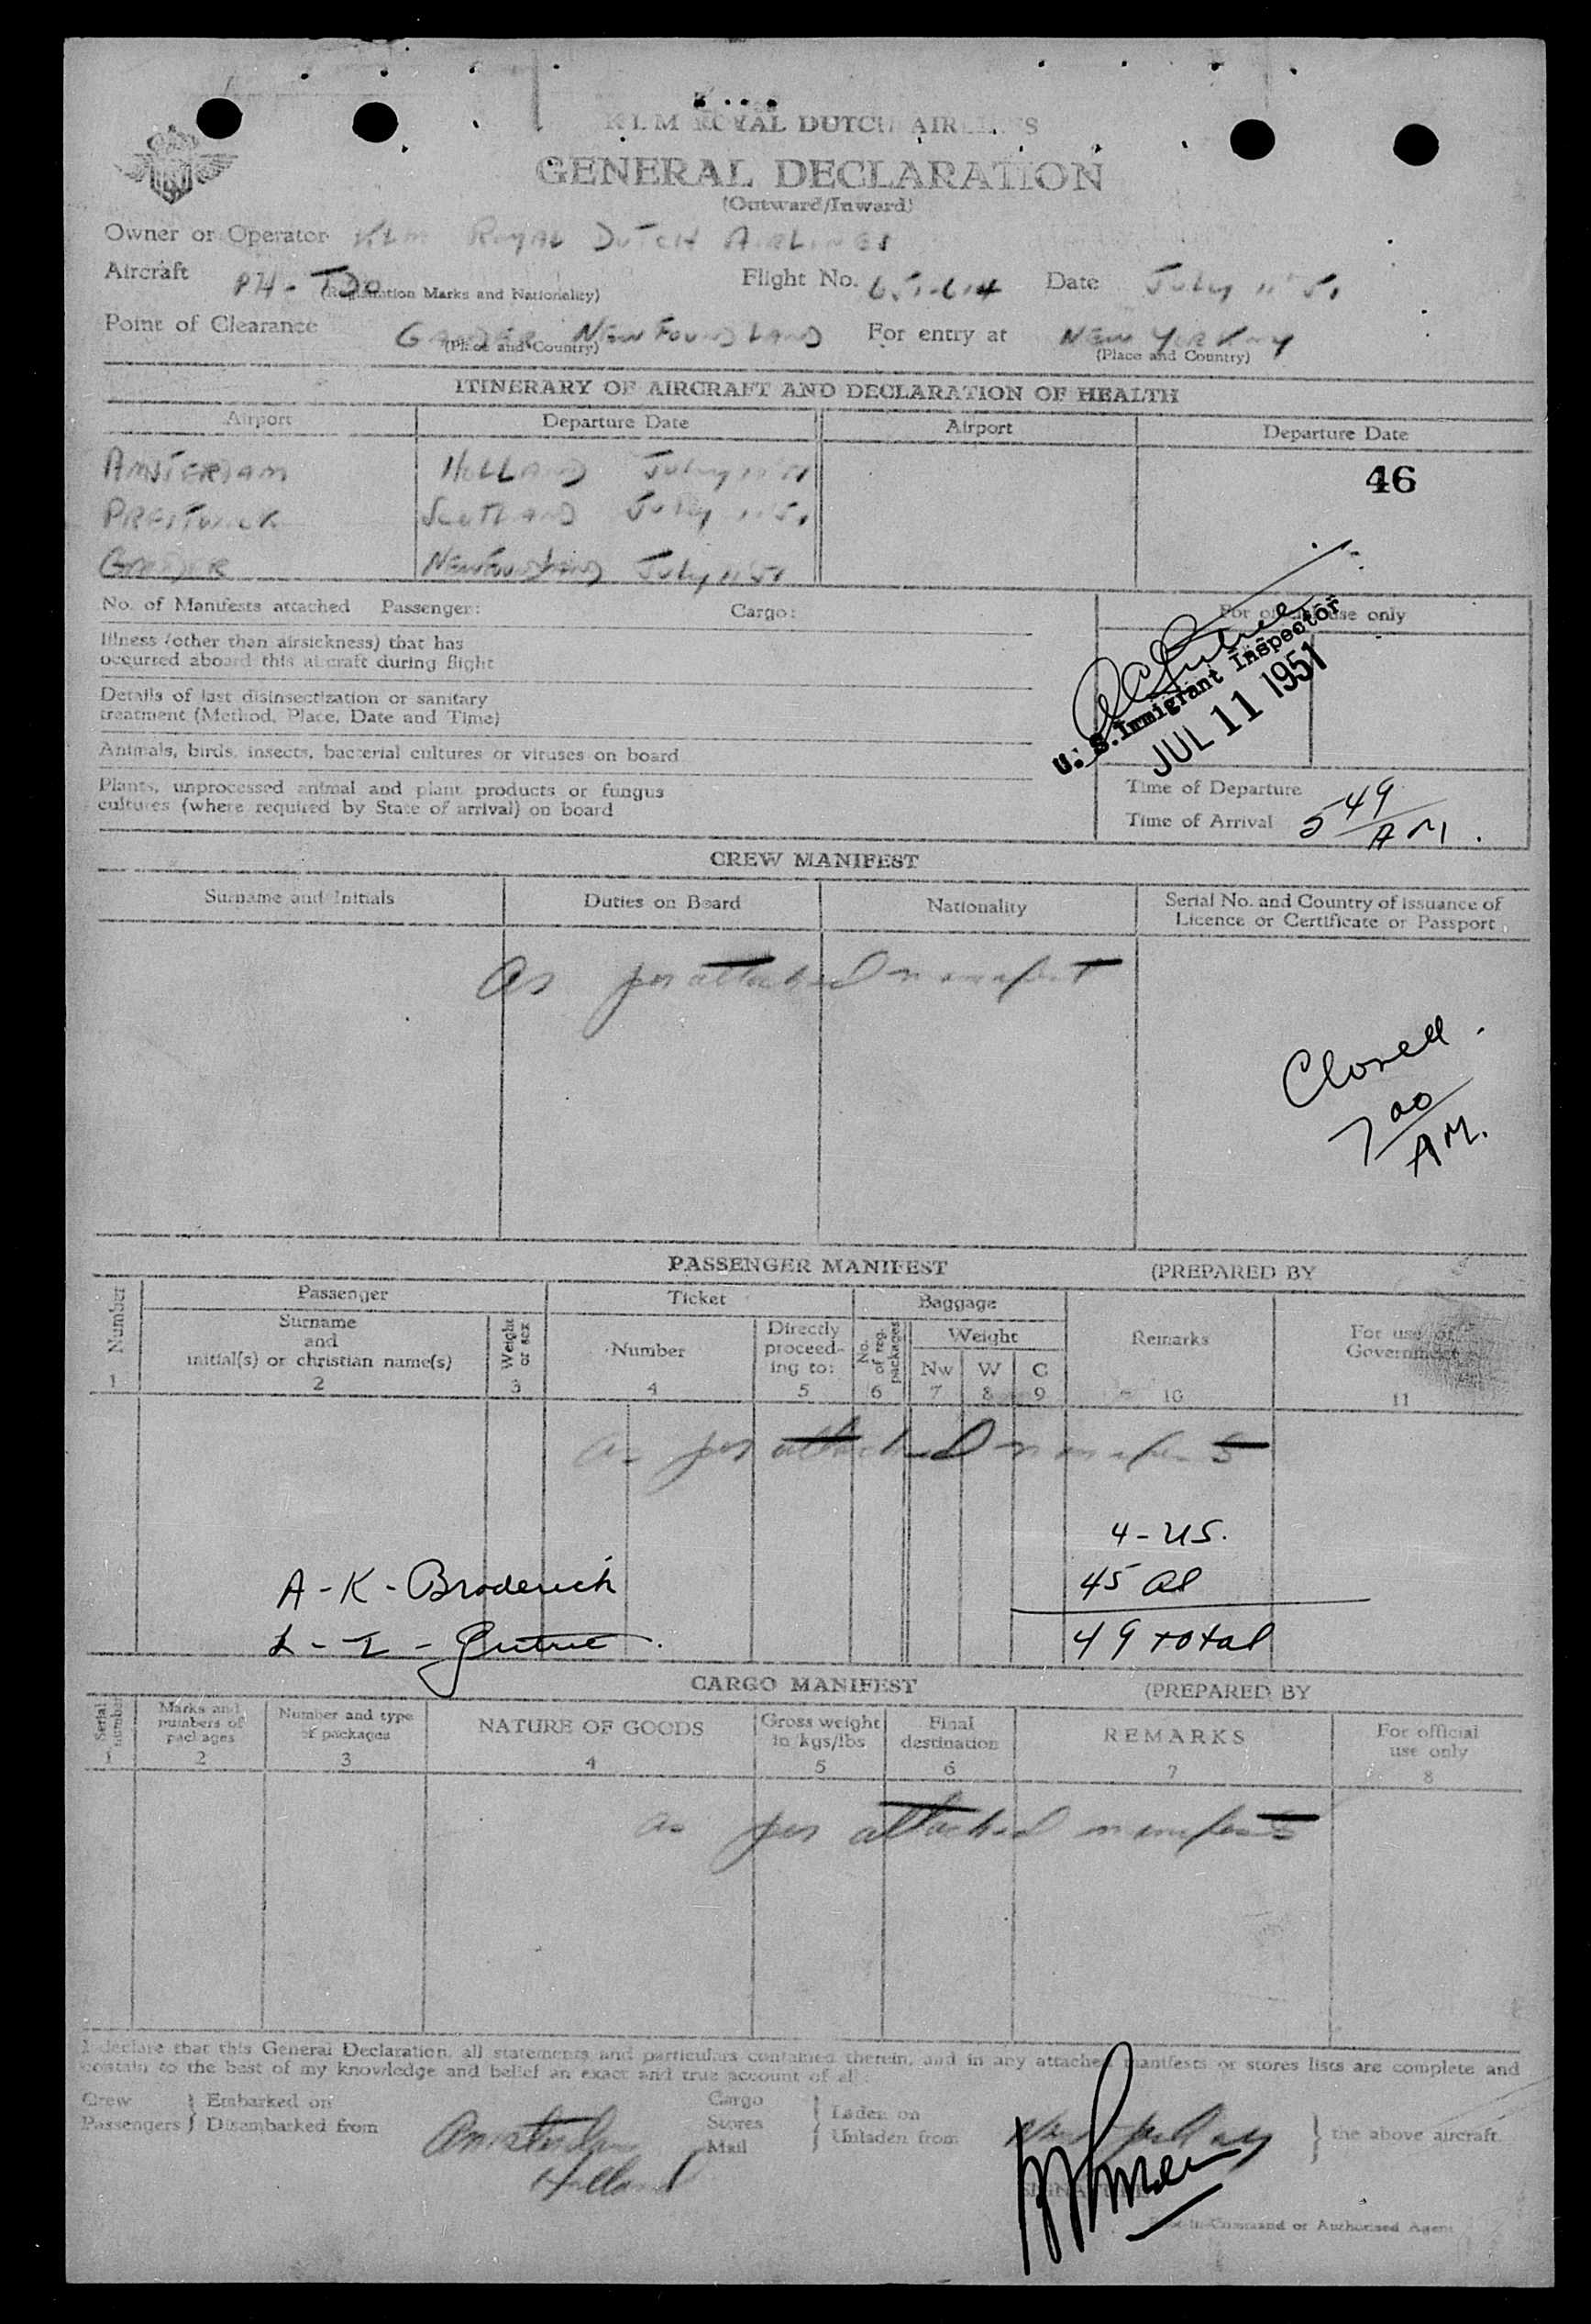 KLM ROYAL DUTCH AIRLINES
GENERAL DECLARATION
(Outward/Inward)
Owner or Operator KLM ROYAL DUTCH AIRLINES
Aircraft PH-TDO Flight No. 651-614 Date July 11 '51
(Registration Marks and Nationality)
Point of Clearance GANDER NEWFOUNDLAND For entry at NEW YORK NY
(Place and Country) (Place and Country)
ITINERARY OF AIRCRAFT AND DECLARATION OF HEALTH
Airport Departure Date Airport Departure Date
AMSTERDAM HOLLAND July 11 '51
46
PRESTWICK SCOTLAND July 11 '51
GANDER NEWFOUNDLAND July 11 '51
No. of Manifests attached Passenger: Cargo:
For official use only
Illness (other than airsickness) that has
occurred aboard this aircraft during flight
Details of last disinsectization or sanitary
treatment (Method, Place, Date and Time)
Animals, birds, insects, bacterial cultures or viruses on board
Plants, unprocessed animal and plant products or fungus
cultures (where required by State of arrival) on board
U. S. Immigrant Inspector
JUL 11 1951
Time of Departure
Time of Arrival 5 49 AM.
CREW MANIFEST
Surname and Initials Duties on Board Nationality Serial No. and Country of issuance of
Licence or Certificate or Passport
As per attached manifest
Closed.
7 00 AM.
PASSENGER MANIFEST (PREPARED BY
Number Passenger Ticket Baggage Remarks For use of
Government
Surname
and
initial(s) or christian name(s)
Weight
or sex
Number Directly
proceed-
ing to:
No.
of reg.
packages
Weight
Nw W C
1 2 3 4 5 6 7 8 9 10 11
as per attached manifests
4 - US.
A - K - Broderick 45 al
L - I - 49 total
CARGO MANIFEST (PREPARED BY
Serial
number
Marks and
numbers of
packages
Number and type
of packages
NATURE OF GOODS Gross weight
in kgs/lbs
Final
destination
REMARKS For official
use only
1 2 3 4 5 6 7 8
as per attached manifests
I declare that this General Declaration, all statements and particulars contained therein, and in any attached manifests or stores lists are complete and
contain to the best of my knowledge and belief an exact and true account of all:
Crew } Embarked on
Passengers } Disembarked from
Amsterdam
Holland
Cargo
Stores
Mail
} Laden on
Unladen from
New York NY
} the above aircraft.
SIGNATURE
in-Command or Authorised Agent